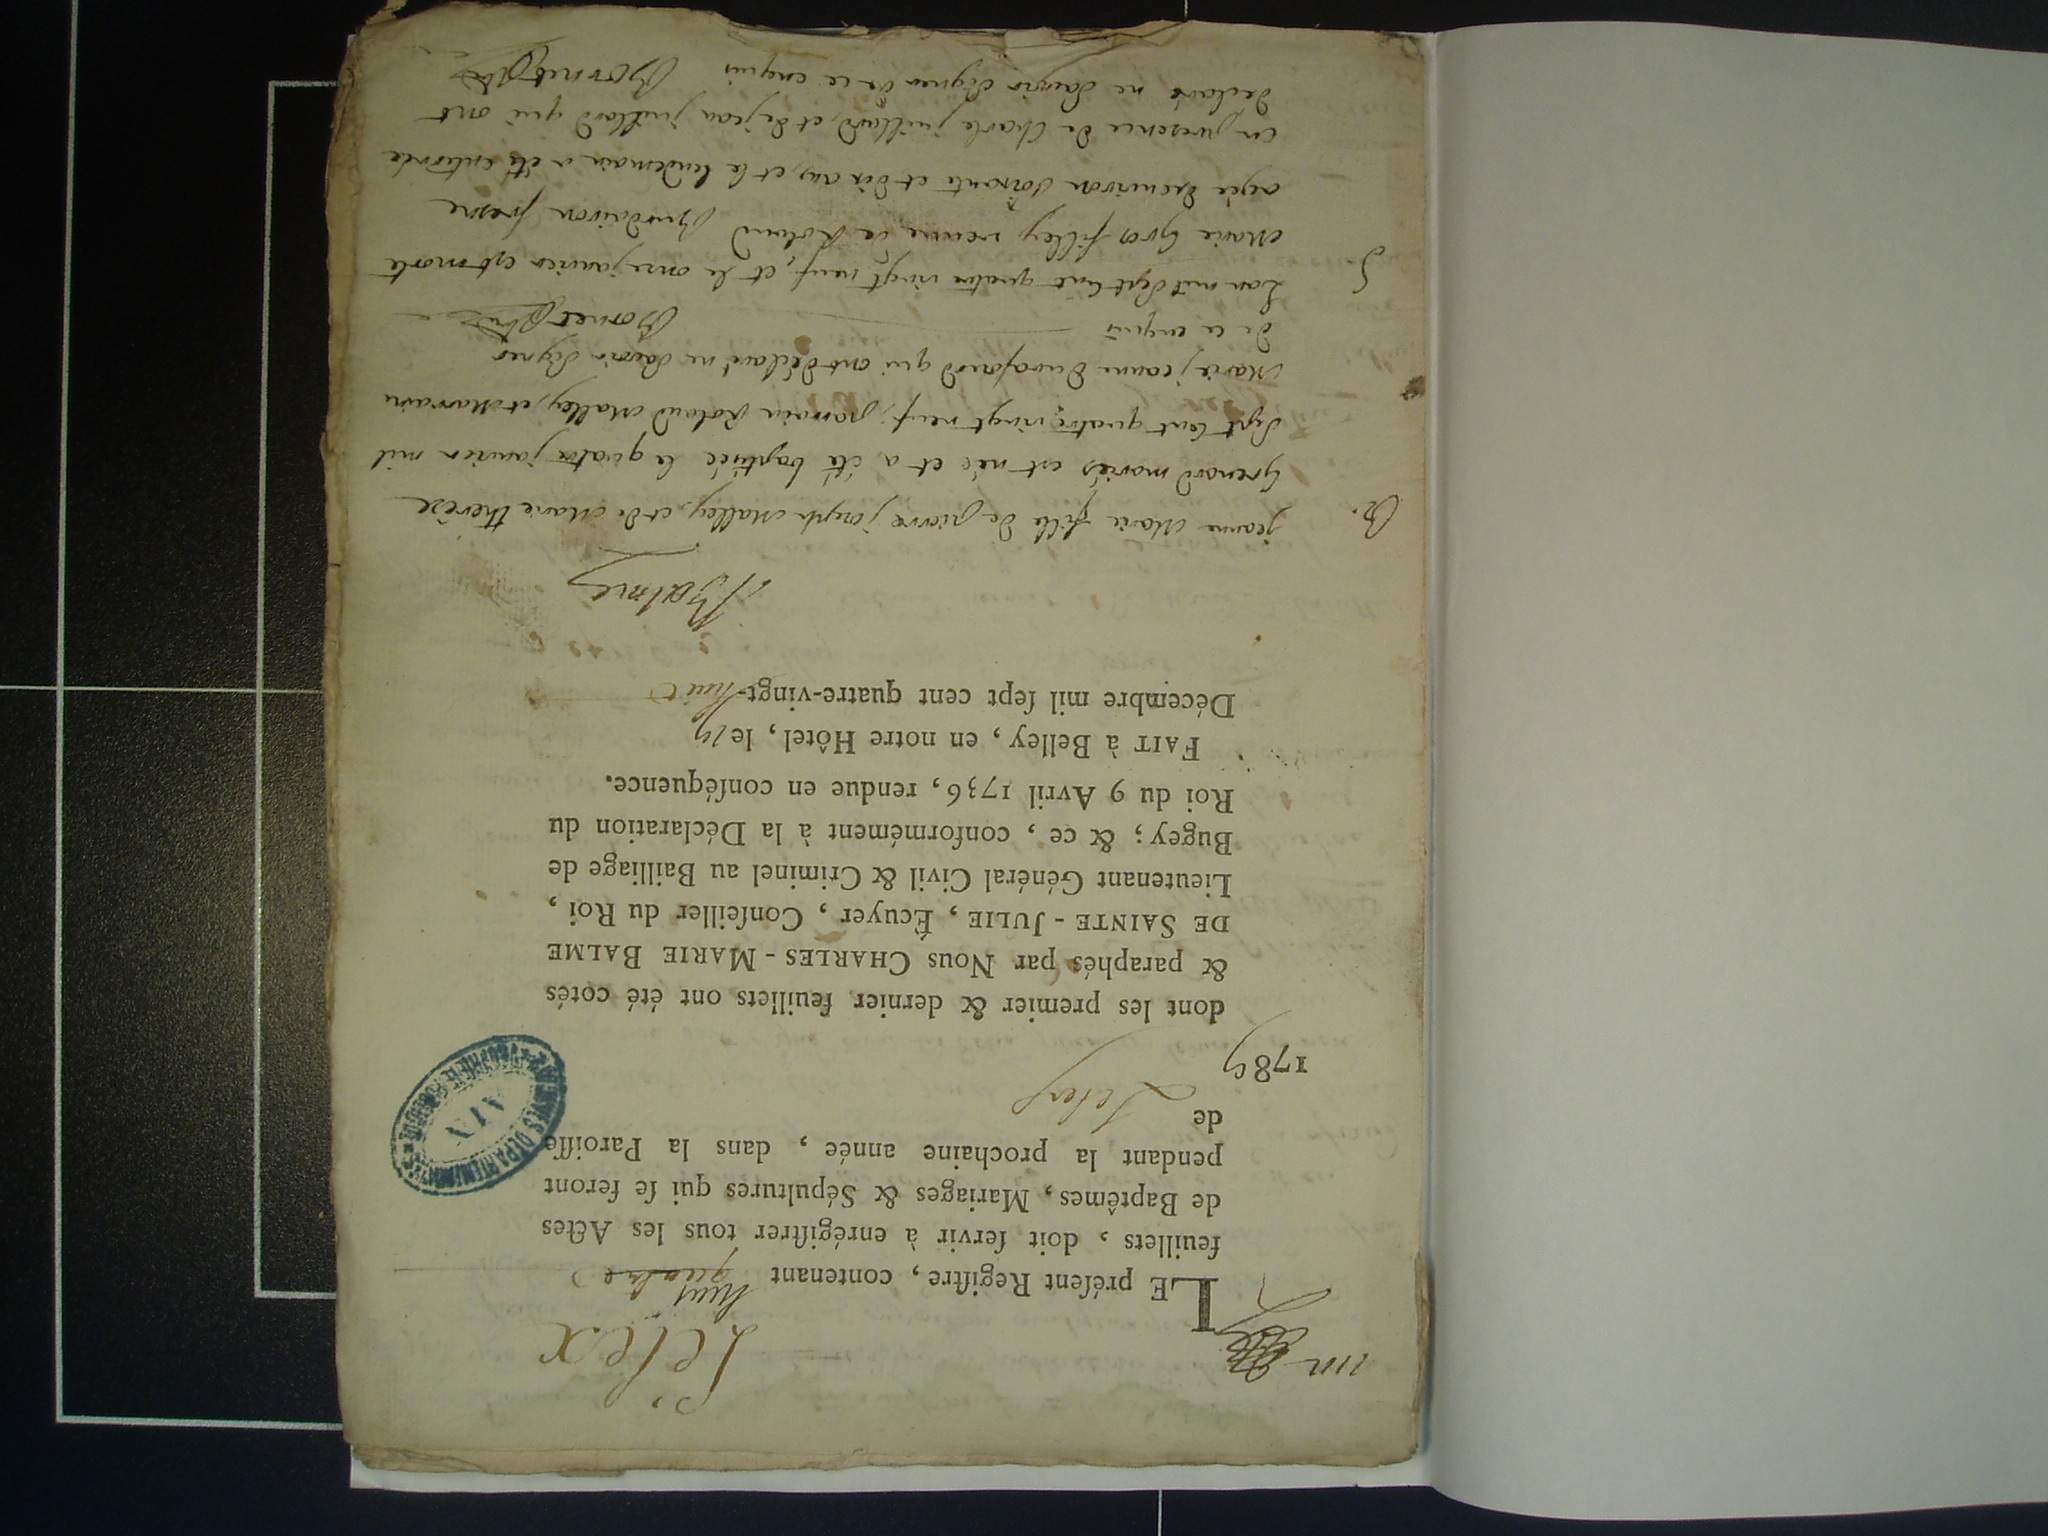 un
Lélex
LE préſent Regiſtre, contenant huit
feuillets, doit ſervir à enrégiſtrer tous les Actes
de Baptêmes, Mariages & Sépultures qui ſe feront
pendant la prochaine année, dans la Paroiſſe
de Lelex
1789
dont les premier & dernier feuillets ont été cotés
& paraphés par Nous CHARLES-MARIE BALME
DE SAINTE-JULIE, Écuyer, Conſeiller du Roi,
Lieutenant Général Civil & Criminel au Bailliage de
Bugey; & ce, conformément à la Déclaration du
Roi du 9 Avril 1736, rendue en conſéquence.
FAIT à Belley, en notre Hôtel, le 19
Décembre mil ſept cent quatre-vingt-huit
Balme
B. jeanne Marie fille de pierre joseph Malley, et de Marie therèse
Grenard mariés est née et a été baptisée le quatre janvier mil
sept cent quatre vingt neuf, parrain Roland Malley, et Marraine
Marie jeanne qui ont déclaré ne savoir signer
de ce enquis Bornet
S Lan mil sept cent quatre vingt neuf, et le onze janvier est morte
Marie Gros filley veuve de Roland
agée denviron soixante et dix ans, et le lendemain a été enterrée
en presence de Charle juillard, et de jean juillard qui ont
declaré ne savoir signer de ce enquis Bornet
ARCHIVES DÉPARTEMENTALES
AIN